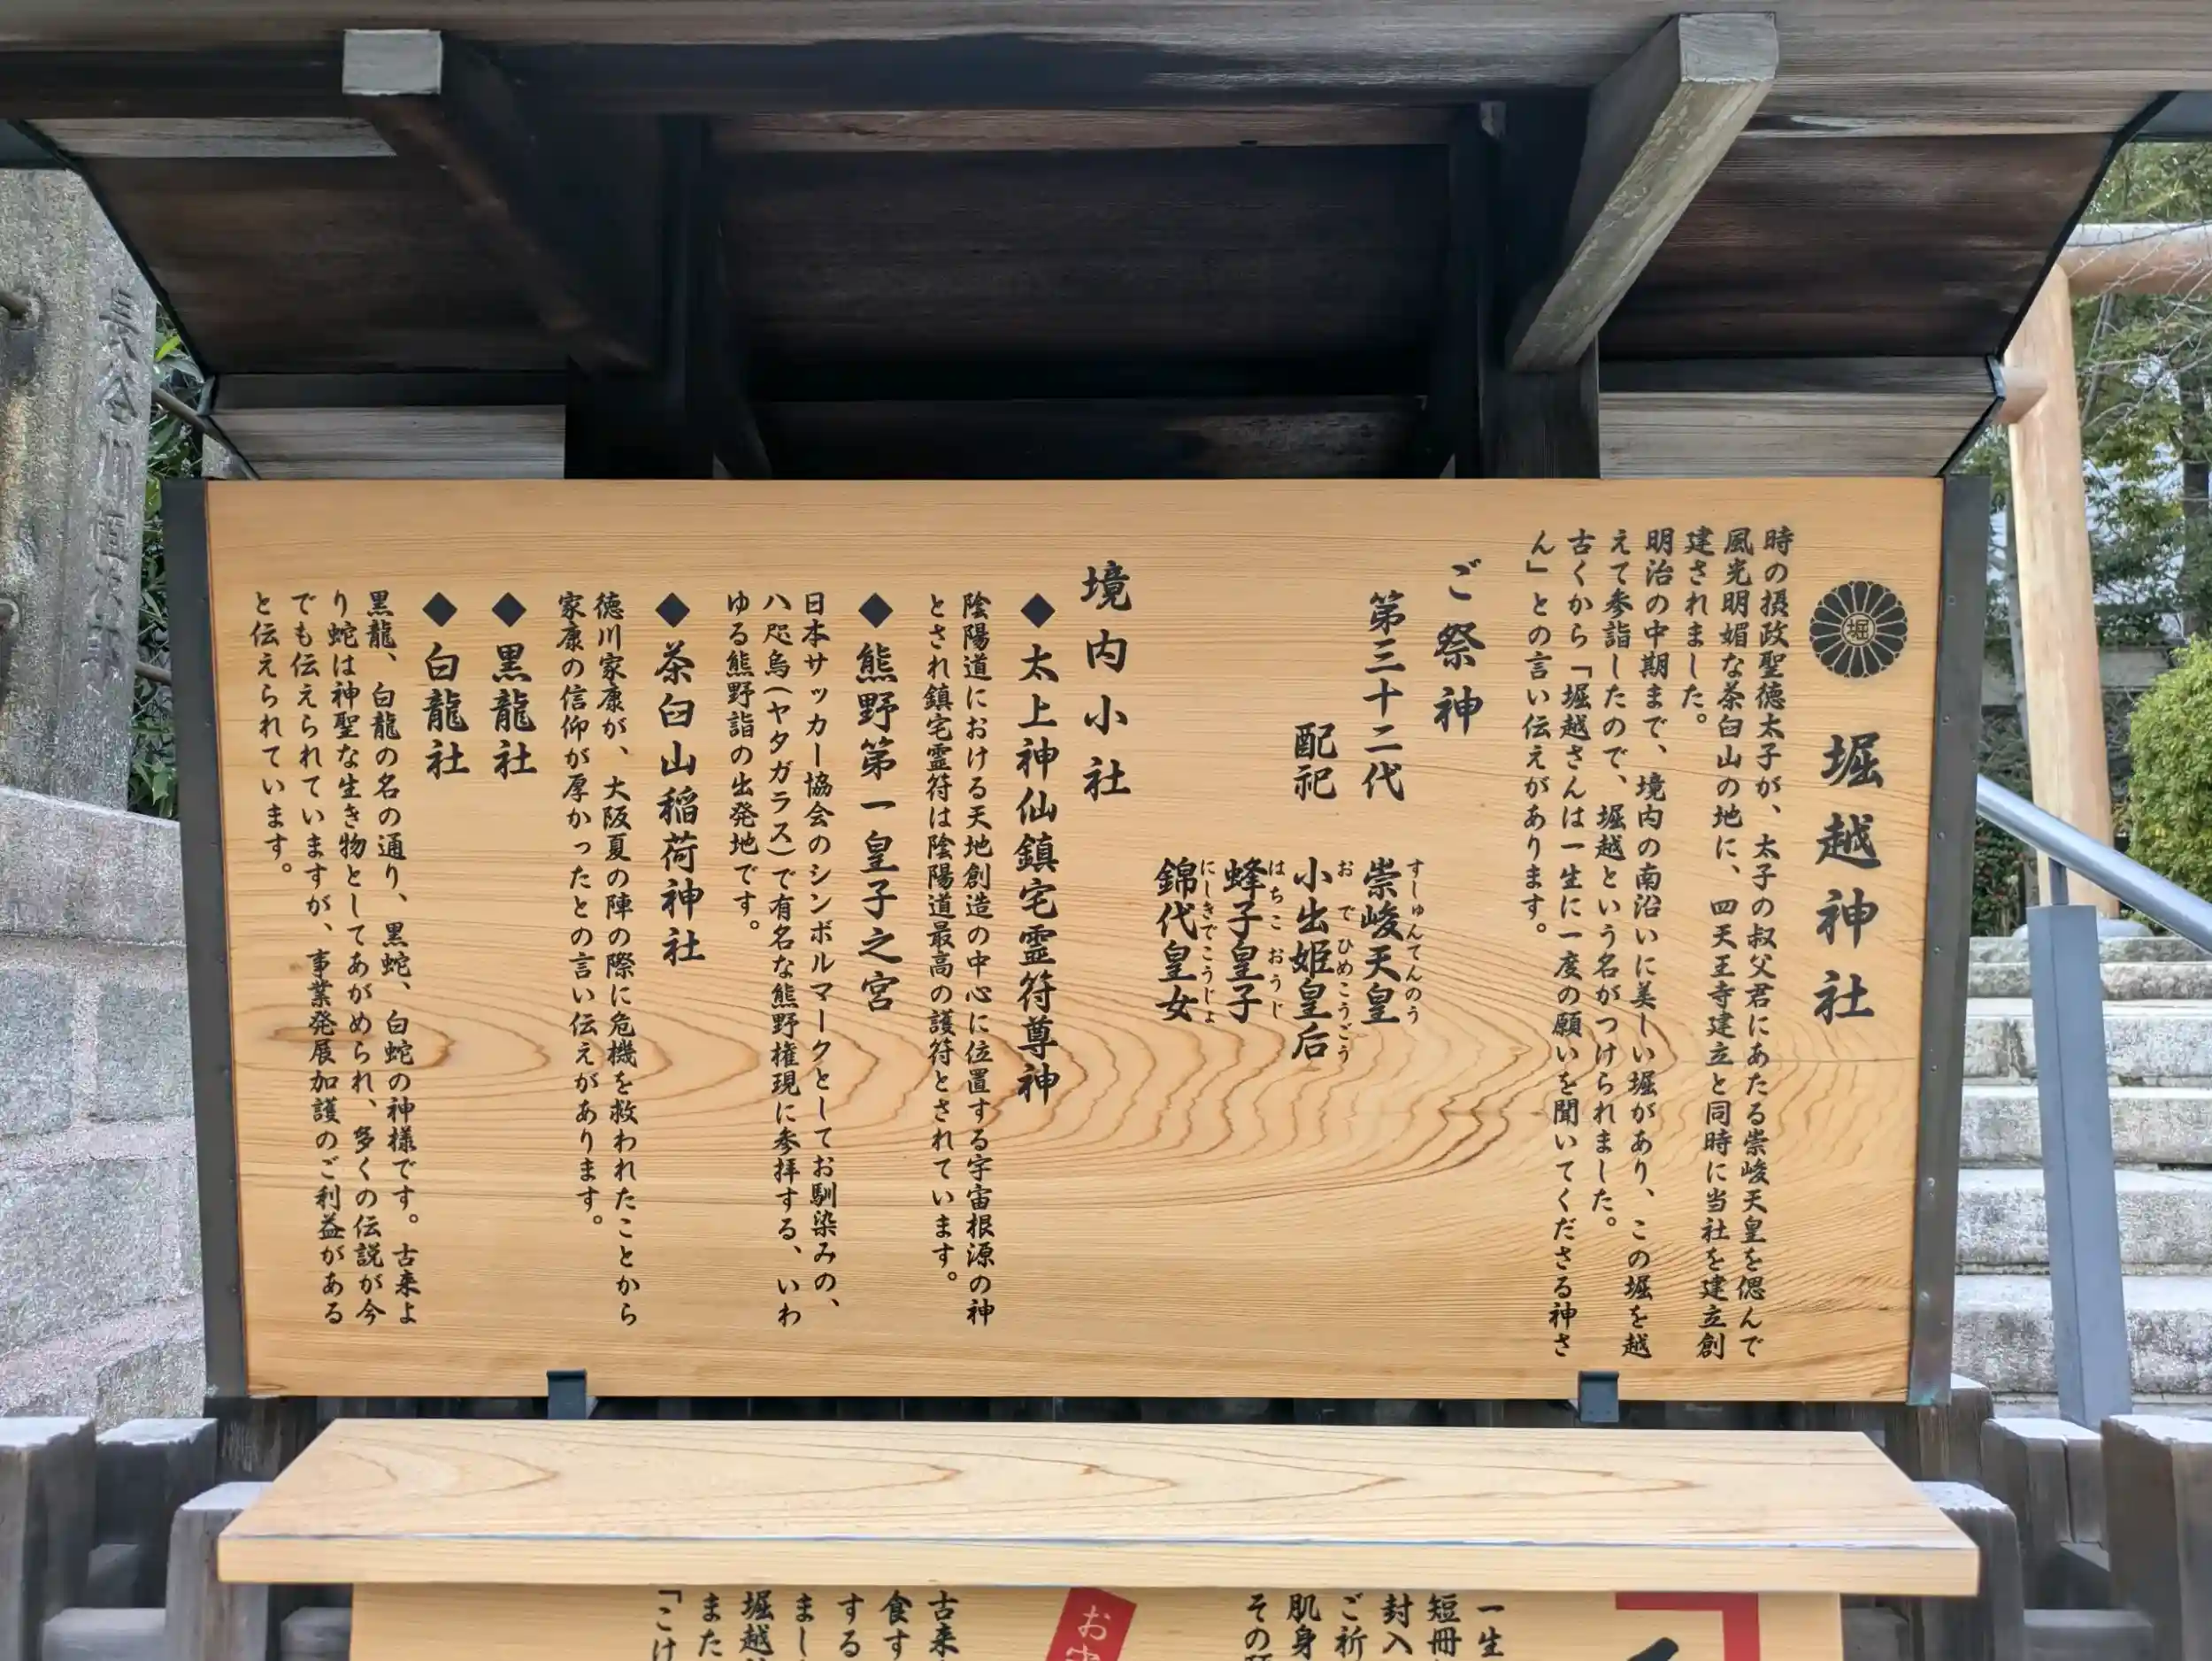 堀
堀越神社
時の摂政聖徳太子が、太子の叔父君にあたる崇峻天皇を偲んで
風光明媚な茶臼山の地に、四天王寺建立と同時に当社を建立創
建されました。
明治の中期まで、境内の南沿いに美しい堀があり、この堀を越
えて参詣したので、堀越という名がつけられました。
古くから「堀越さんは一生に一度の願いを聞いてくださる神さ
ん」との言い伝えがあります。
ご祭神
第三十二代
崇峻天皇
すしゅんてんのう
配祀
小出姫皇后
おでひめこうごう
蜂子皇子
はちこおうじ
錦代皇女
にしきでこうじょ
境内小社
◆太上神仙鎮宅霊符尊神
陰陽道における天地創造の中心に位置する宇宙根源の神
とされ鎮宅霊符は陰陽道最高の護符とされています。
◆熊野第一皇子之宮
日本サッカー協会のシンボルマークとしてお馴染みの、
八咫烏(ヤタガラス)で有名な熊野権現に参拝する、いわ
ゆる熊野詣の出発地です。
◆茶臼山稲荷神社
徳川家康が、大阪夏の陣の際に危機を救われたことから
家康の信仰が厚かったとの言い伝えがあります。
◆黒龍社
◆白龍社
黒龍、白龍の名の通り、黒蛇、白蛇の神様です。古来よ
り蛇は神聖な生き物としてあがめられ、多くの伝説が今
でも伝えられていますが、事業発展加護のご利益がある
と伝えられています。
一生
短冊
封入
ご祈
肌身
その
お
古来
食す
する
まし
堀越
また
「こけ
長谷川恒